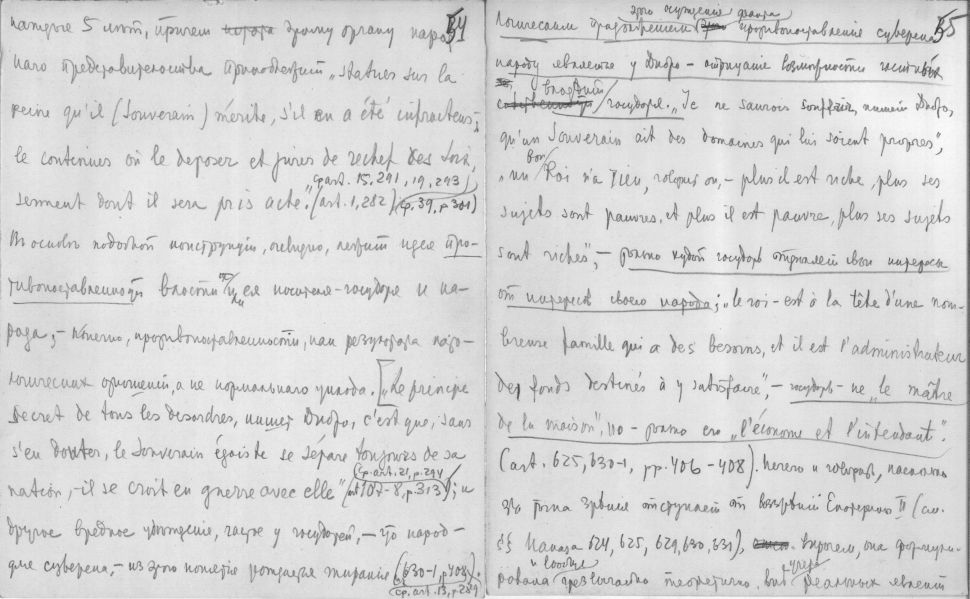 54
каждые 5 лѣт, причем этому органу народ-
наго представительства принадлежит "statuer sur la
peine qu'il (Souverain) mérite, s'il en a été infracteur;
le continuer où le deposer et jurer de rechef des loix,
serment dont il sera pris acte" (art. 1, 282) (ср. 39, p 301)
ср art. 15, 291, 19, 293
В основѣ подобной конструкціи, очевидно, лежит идея про-
тивопоставленности власти или ея носителя-государя и на-
рода; - конечно, противопоставленности, как результата пато-
логических отношеній, а не нормальнаго уклада. ["Le principe
secret de tous les desordres, пишет Дидро, c'est que, sans
s'en douter, le Souverain égoiste se sépare toujours de sa
nation, - il se croit en guerre avec elle" (art 107-8, p. 313); и
ср. art. 21, p. 294
другое вредное убѣжденіе, частое у государей, - что народ -
для суверена, - из этого понятія рождается тиранія (630-1, p 408).
ср. art. 13, p 289
55
это осужденія факта
Логическим продолженіем противопоставленія суверена
народу является у Дидро - отрицаніе возможности частных
владѣній
государя. "Je ne saurois souffrir, пишет Дидро,
qu'un Souverain ait des domaines qui lui soient propres",
"un bon Roi n'a rien, говорит он, - plus il est riche, plus ses
sujets sont pauvres, et plus il est pauvre, plus ses sujets
sont riches", - только худой государь отдѣляет свои интересы
от интересов своего народа; "le roi - est à la tête d'une nom-
breuse famille qui a des besoins, et il est l'administrateur
des fonds destinés à y satisfaire", - государь - не "le maître
de la maison", но - только его "l'économe et l'intendant".
(art. 625, 630-1, pp. 406-408). Нечего и говорить, насколько
эта точка зрѣнія отступает от воззрѣній Екатерины II (см.
§§ Наказа 624, 625, 629, 630, 631), впрочем, она формули-
рована чрезвычайно теоретично, внѣ реальных явленій
и вообще
учета